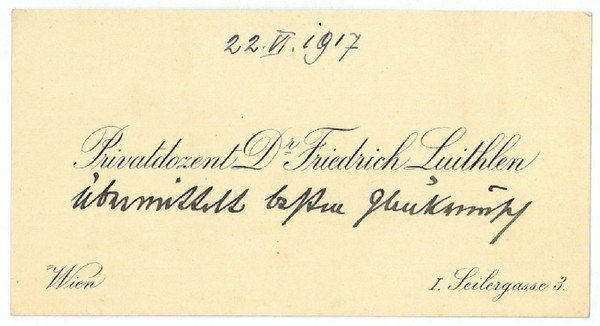 22. VI. 1917
Privatdozent Dr Friedrich Luithlen
übermittelt besten Glückwunsch
Wien
I. Seilergasse 3.